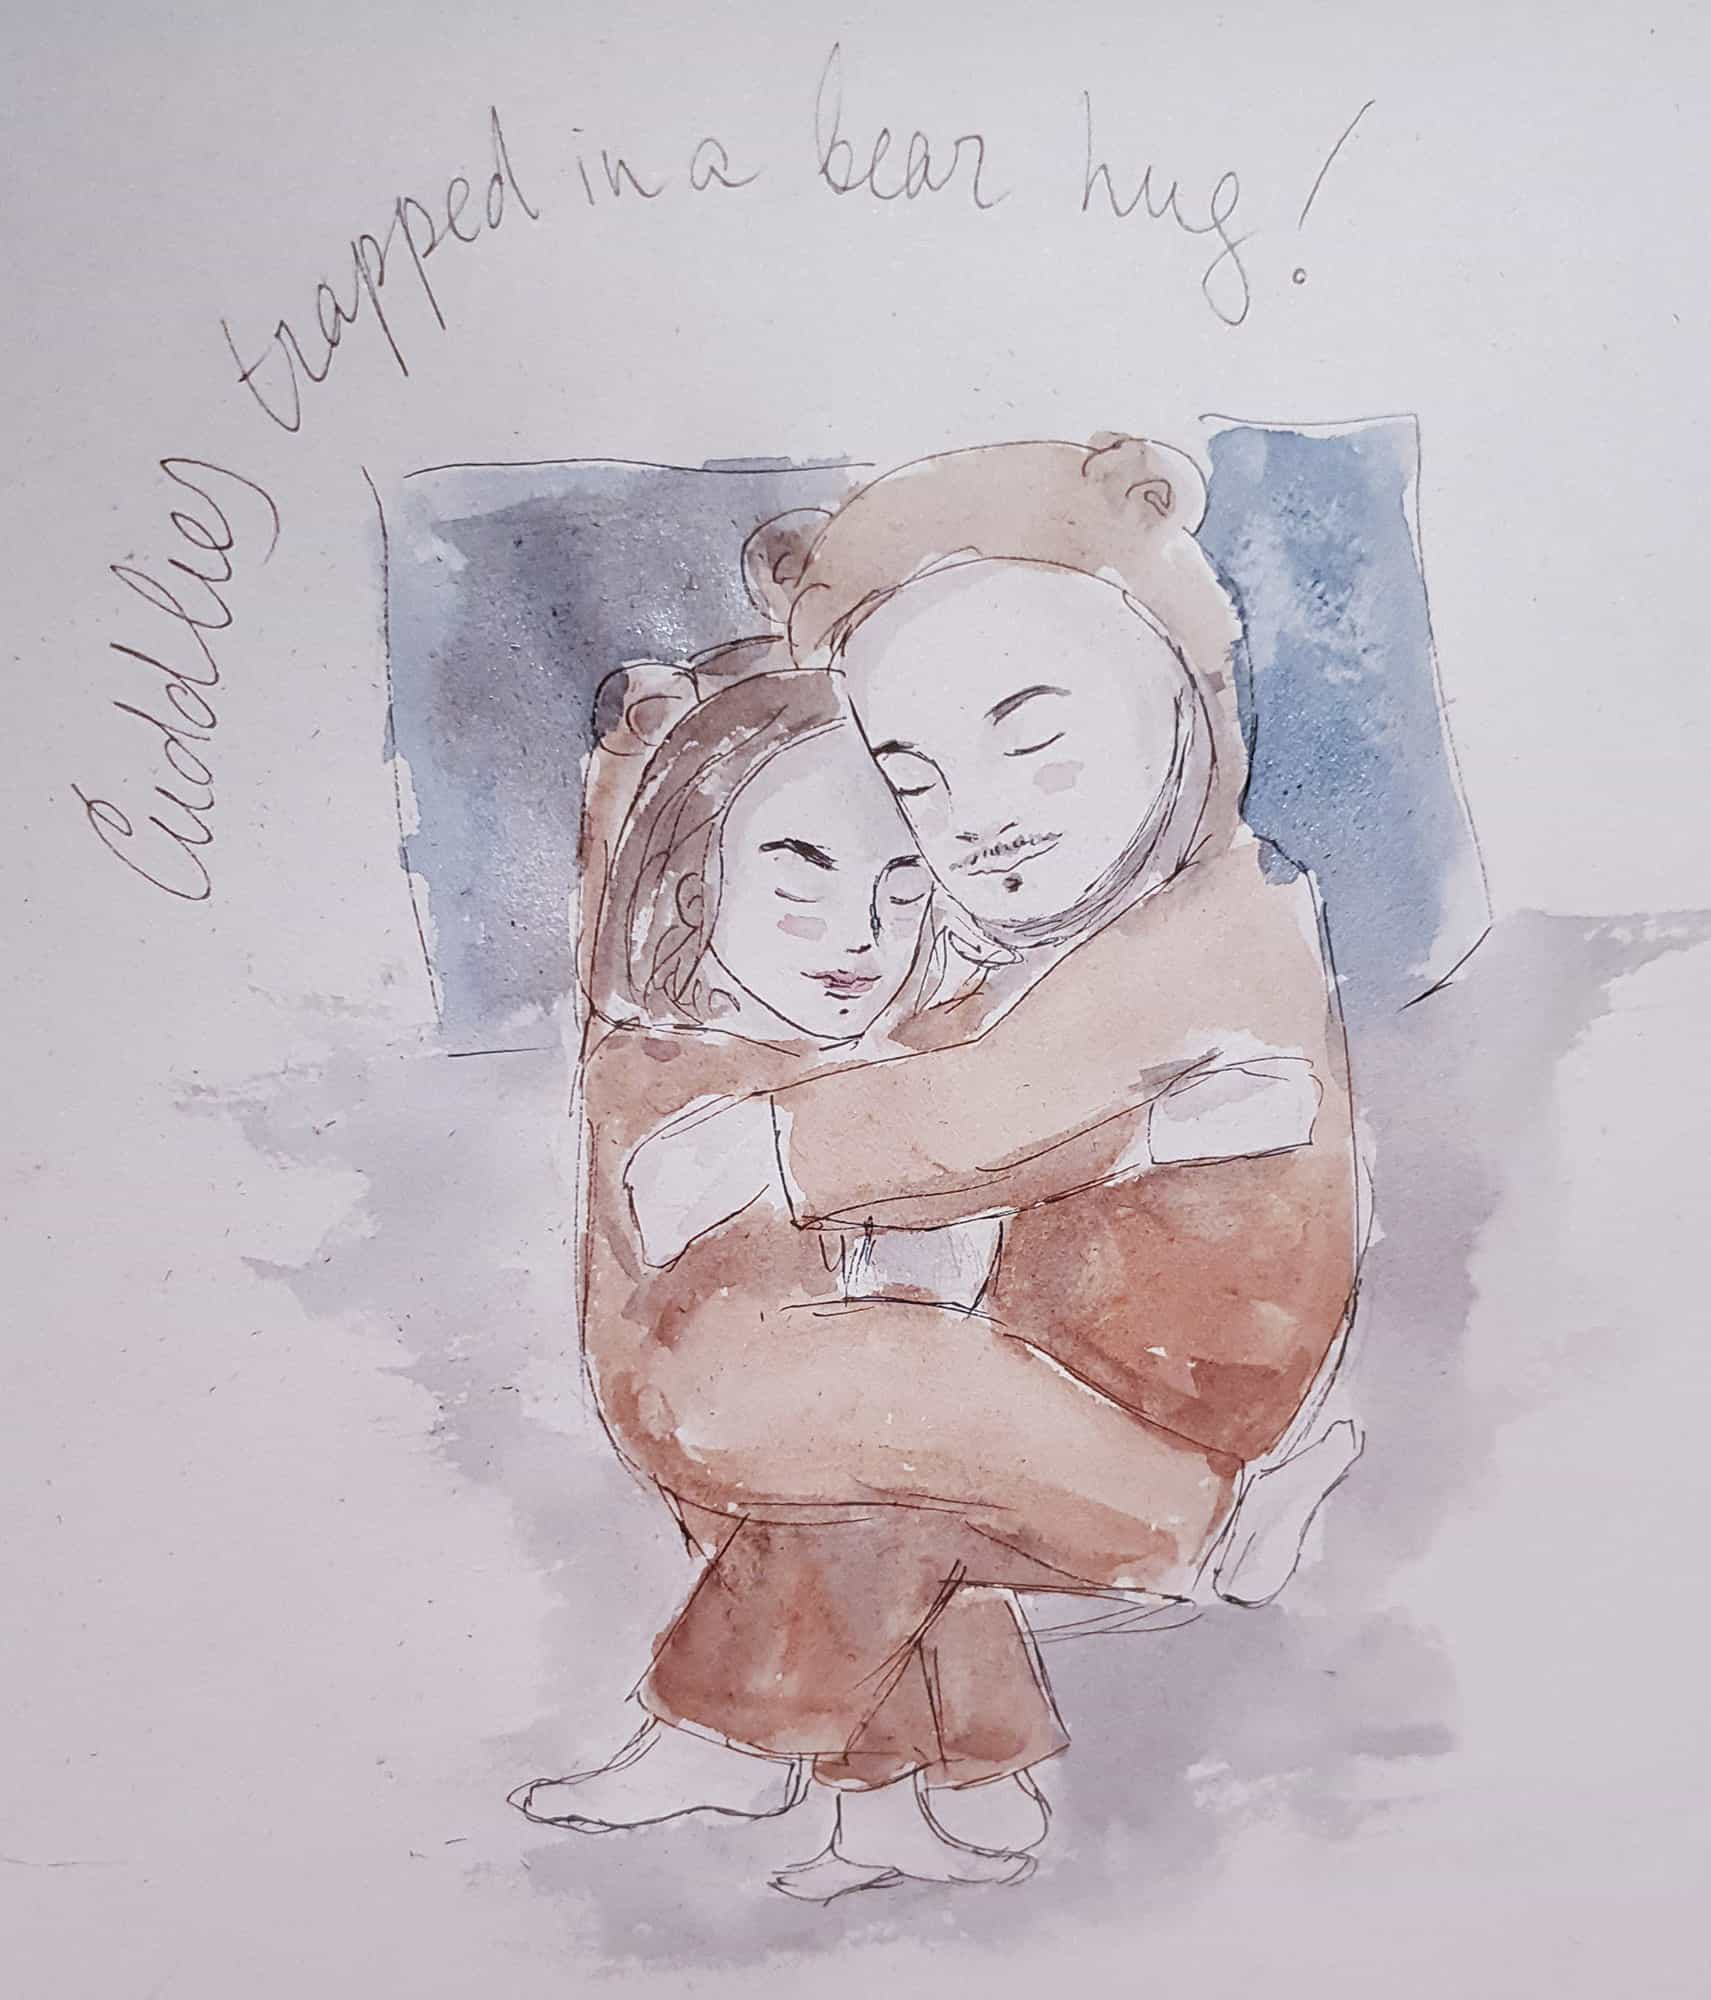 Cuddlies trapped in a bear hug!